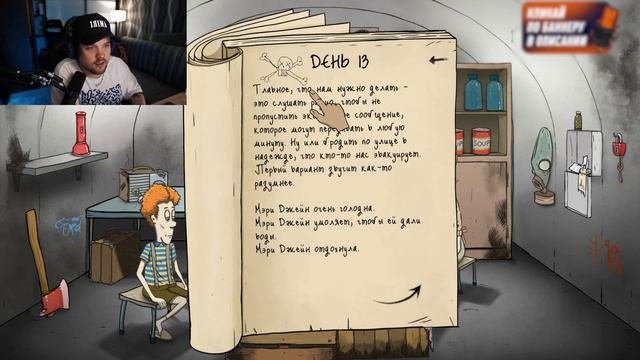 ДЕНЬ 13
Главное, что нам нужно делать -
это слушать чтобы не
пропустить сообщение,
которое могут передавать в любую
минуту. Ну или бродить по улице в
надежде, что кто-то нас эвакуирует.
Первый вариант звучит как-то
разумнее.
Мэри Джейн очень голодна.
Мэри Джейн умоляет, чтобы ей дали
воды.
Мэри Джейн отдохнула.
КЛИКАЙ
ПО БАННЕРУ
В ОПИСАНИИ
SOUP